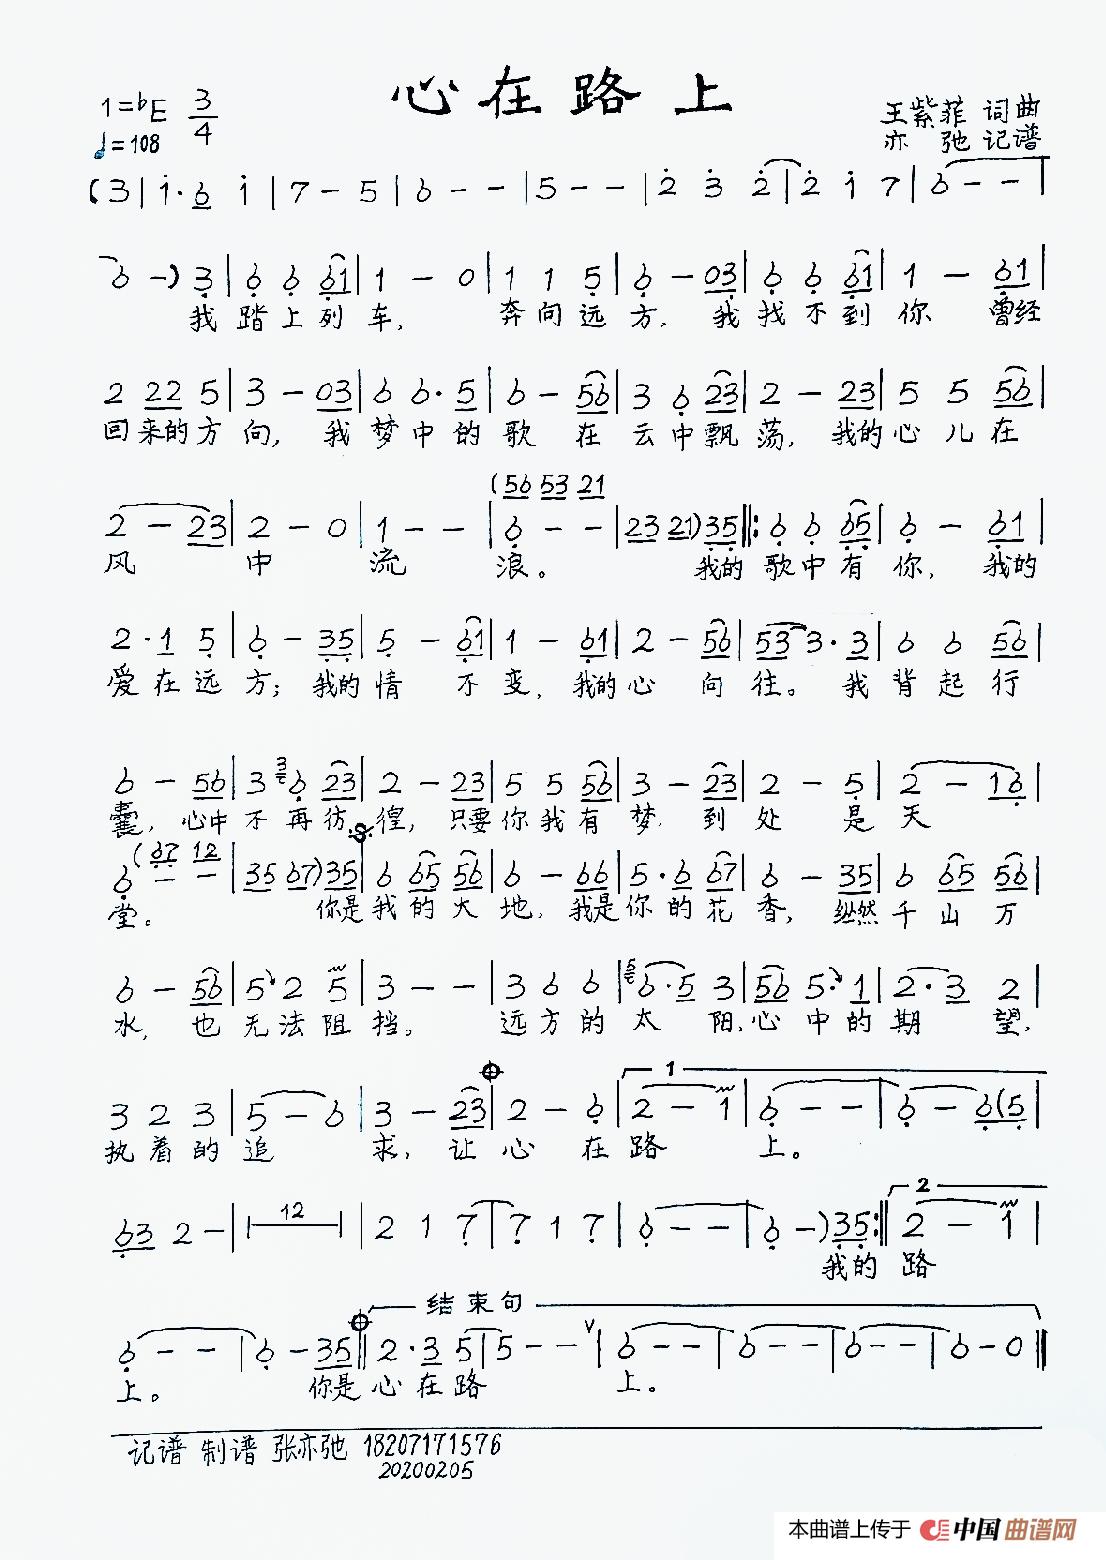 心在路上
1=♭E 3/4
♩=108
王紫菲 词曲
亦弛 记谱
(3 | i· 6 i | 7 - 5 | 6 - - | 5 - - | 2 3 2 | 2 i 7 | 6 - - |
6 -) 3 | 6 6 61 | 1 - 0 | 1 1 5 | 6 - 03 | 6 6 61 | 1 - 61 |
我 踏上列 车, 奔向远 方, 我 找不到 你 曾经
2 22 5 | 3 - 03 | 6 6· 5 | 6 - 56 | 3 6 23 | 2 - 23 | 5 5 56 |
回来的方 向, 我 梦中的 歌 在 云中飘 荡, 我的 心儿在
(56 53 21
2 - 23 | 2 - 0 | 1 - - | 6 - - | 23 21) 35 ‖: 6 6 65 | 6 - 61 |
风 中 流 浪。 我的 歌中有 你, 我的
2· 1 5 | 6 - 35 | 5 - 61 | 1 - 61 | 2 - 56 | 53 3· 3 | 6 6 56 |
爱在远 方; 我的 情 不 变, 我的 心 向 往。 我 背起行
6 - 56 | 3 3 6 23 | 2 - 23 | 5 5 56 | 3 - 23 | 2 - 5 | 2 - 16 |
囊, 心中 不再彷 徨, 只要 你我有 梦, 到 处 是 天
(67 12
6 - - | 35 67) 35 | 6 65 56 | 6 - 66 | 5· 6 67 | 6 - 35 | 6 65 56 |
堂。 你是 我的大 地, 我是 你的花 香, 纵然 千山万
6 - 56 | 5 2 5 | 3 - - | 3 6 6 | 5 6· 5 3 | 56 5· 1 | 2· 3 2 |
水, 也 无法阻 挡。 远方的 太 阳, 心中的 期 望,
1
3 2 3 | 5 - 6 | 3 - 23 | 2 - 6 | 2 - 1 | 6 - - | 6 - 6(5 |
执着的 追 求, 让 心 在 路 上。
2
63 2 - | 12 | 2 1 7 | 7 1 7 | 6 - - | 6 -) 35 :‖ 2 - 1 |
我的 路
结束句
6 - - | 6 - 35 ‖ 2· 3 5 | 5 - - ∨ | 6 - - | 6 - - | 6 - - | 6 - 0 ‖
上。 你是 心在路 上。
记谱 制谱 张亦弛 18207171576
20200205
本曲谱上传于 中国曲谱网